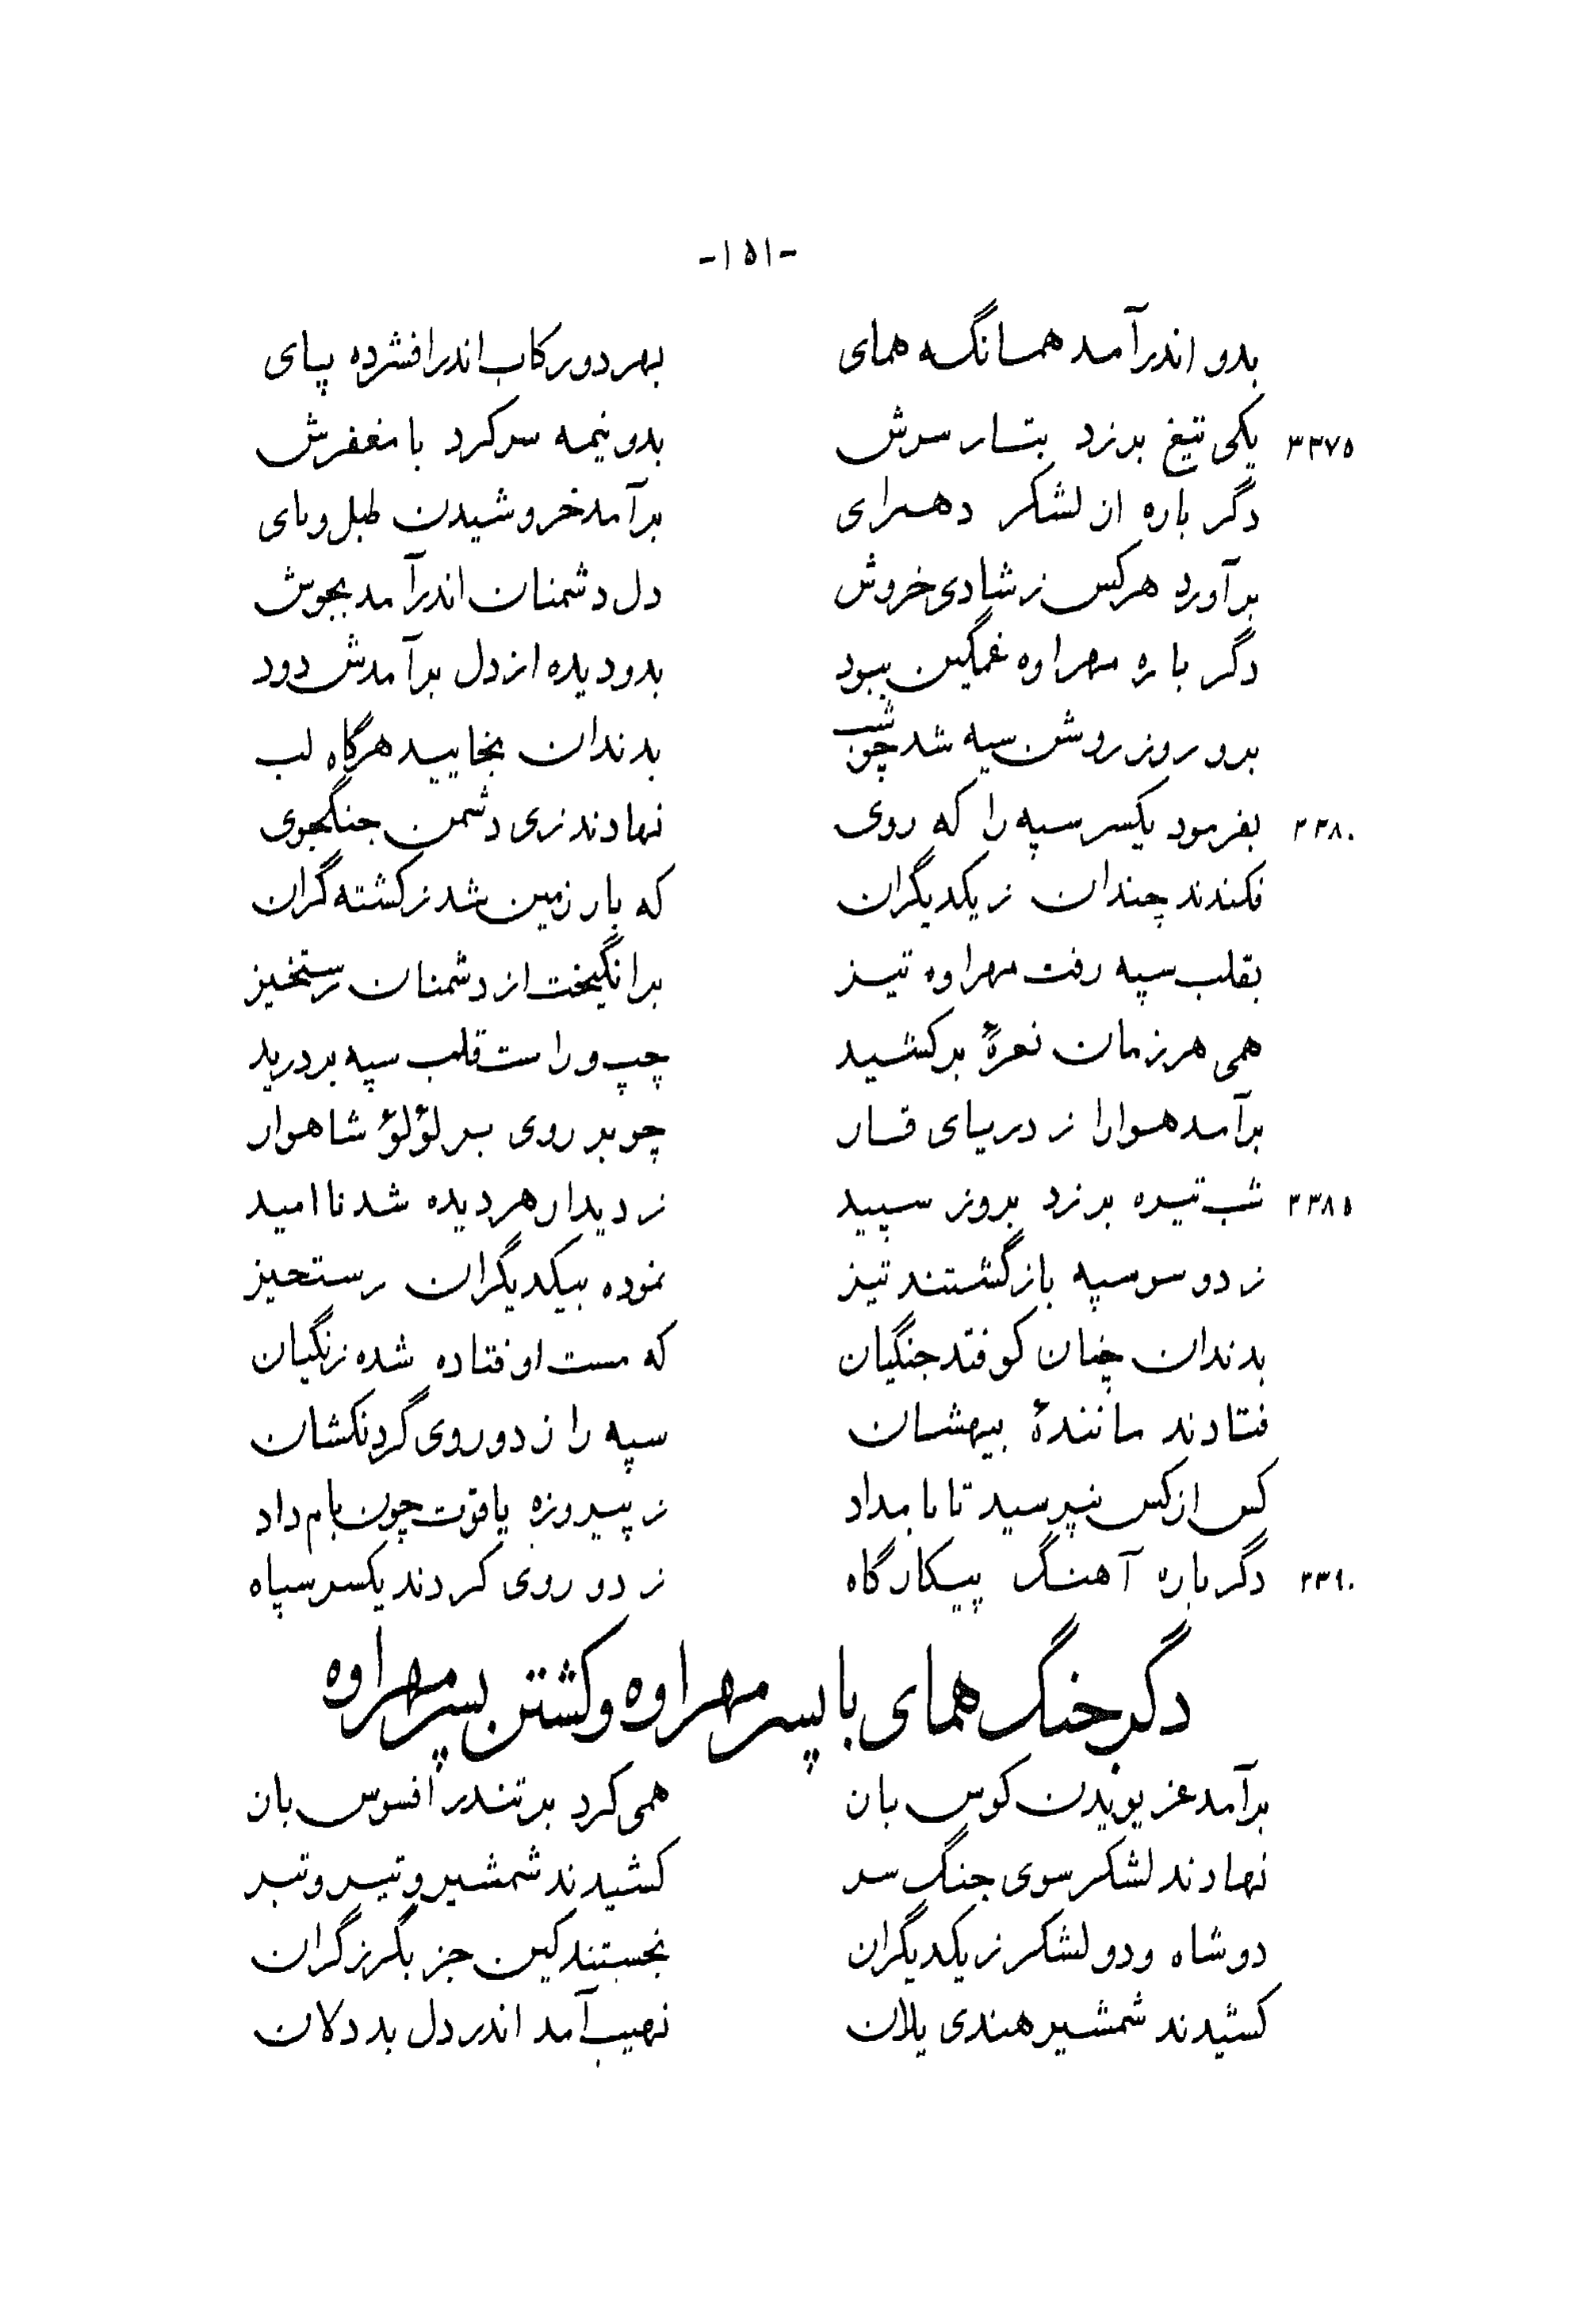 -۱۵۱-
بدو اندر آمد همانگه همای بهر دو رکاب اندر افشرده پای
۳۳۷۵ یکی تیغ بر زد بتار سرش بدو نیمه سر کرد با مغفرش
دگر باره از لشکر دهرای برآمد خروشیدن طبل و نای
برآورد هرکس ز شادی خروش دل دشمنان اندرآمد بجوش
دگر باره مهراوه غمگین ببود بدو دیده از دل برآمدش دود
برو روز روشن سیه شد چو شب بدندان بخایید هرگاه لب
۳۳۸۰ بفرمود یکسر سپه را که روی نهادند زی دشمن جنگجوی
فکندند چندان ز یکدیگران که بار زمین شد ز کشته گران
بقلب سپه رفت مهراوه تیز برانگیخت از دشمنان رستخیز
همی هر زمان نعرهٔ برکشید چپ و راست قلب سپه بردرید
برآمد هوا را ز دریای قار چو بر روی بر لؤلؤ شاهوار
۳۳۸۵ شب تیره بر زد بروز سپید ز دیدار هر دیده شد ناامید
ز دو سو سپه باز گشتند تیز نموده بیکدیگران رستحیز
بدندان چنان کوفتد جنگیان که مست اوفتاده شده زنگیان
فتادند مانندهٔ بیهشان سپه را ز دو روی گردنکشان
کس از کس نپرسید تا بامداد ز پیروزه یاقوت چون بام داد
۳۳۹۰ دگر باره آهنگ پیکارگاه ز دو روی کردند یکسر سپاه
دگر جنگ همای با پسر مهراوه و کشتن پسر مهراوه
برآمد غریویدن کوس بان همی کرد بر تندر افسوس بان
نهادند لشکر سوی جنگ سر کشیدند شمشیر و تیر و تبر
دو شاه و دو لشکر ز یکدیگران نجستند کین جز بگرز گران
کشیدند شمشیر هندی یلان نهیب آمد اندر دل بددلان